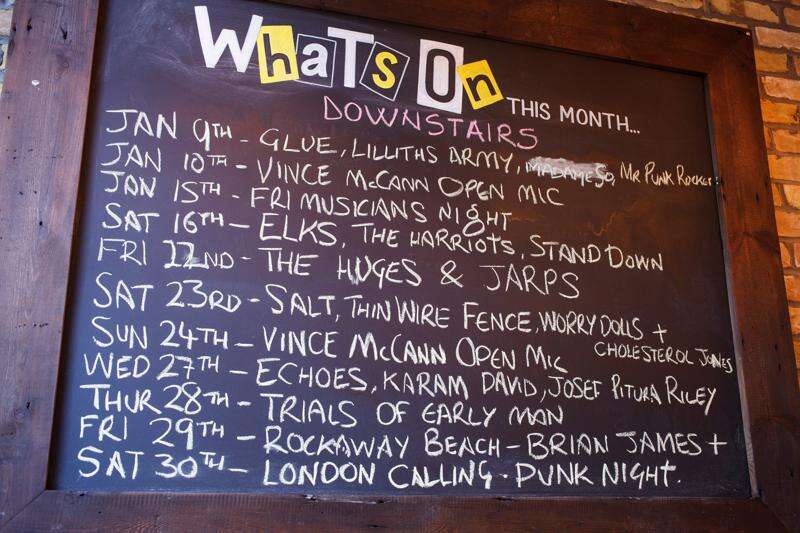 WhaTs On THIS MONTH...
DOWNSTAIRS
JAN 9TH - GLUE, LILLITHS ARMY, MADAME SO, MR PUNK ROCKER
JAN 10TH - VINCE McCANN OPEN MIC
JAN 15TH - FRI MUSICIANS NIGHT
SAT 16TH - ELKS, THE HARRIOTS, STAND DOWN
FRI 22ND - THE HUGES & JARPS
SAT 23RD - SALT, THIN WIRE FENCE, WORRY DOLLS +
CHOLESTEROL JONES
SUN 24TH - VINCE McCANN OPEN MIC
WED 27TH - ECHOES, KARAM DAVID, JOSEF PITURA RILEY
THUR 28TH - TRIALS OF EARLY MAN
FRI 29TH - ROCKAWAY BEACH - BRIAN JAMES +
SAT 30TH - LONDON CALLING - PUNK NIGHT.